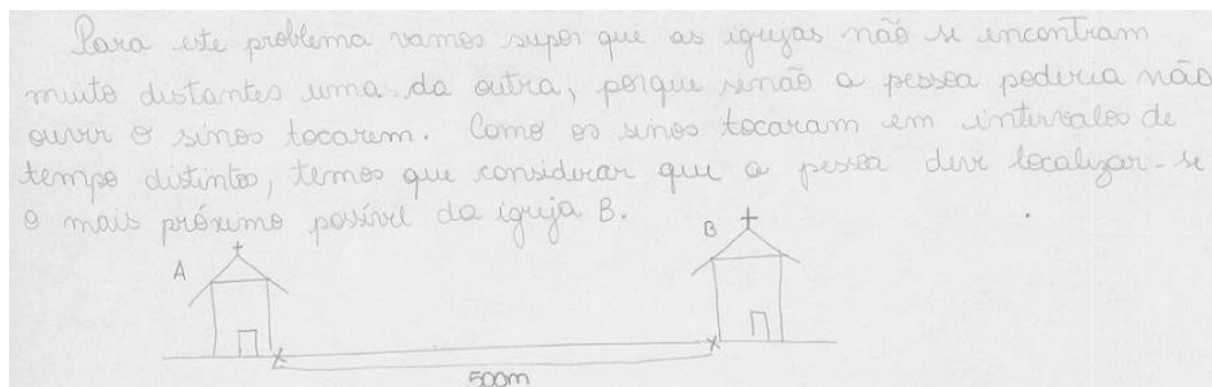 Para este problema vamos supor que as igrejas não se encontram
muito distantes uma da outra, porque senão a pessoa poderia não
ouvir o sinos tocarem. Como os sinos tocaram em intervalos de
tempo distintos, temos que considerar que a pessoa deve localizar-se
o mais próximo possível da igreja B.
A
B
500m